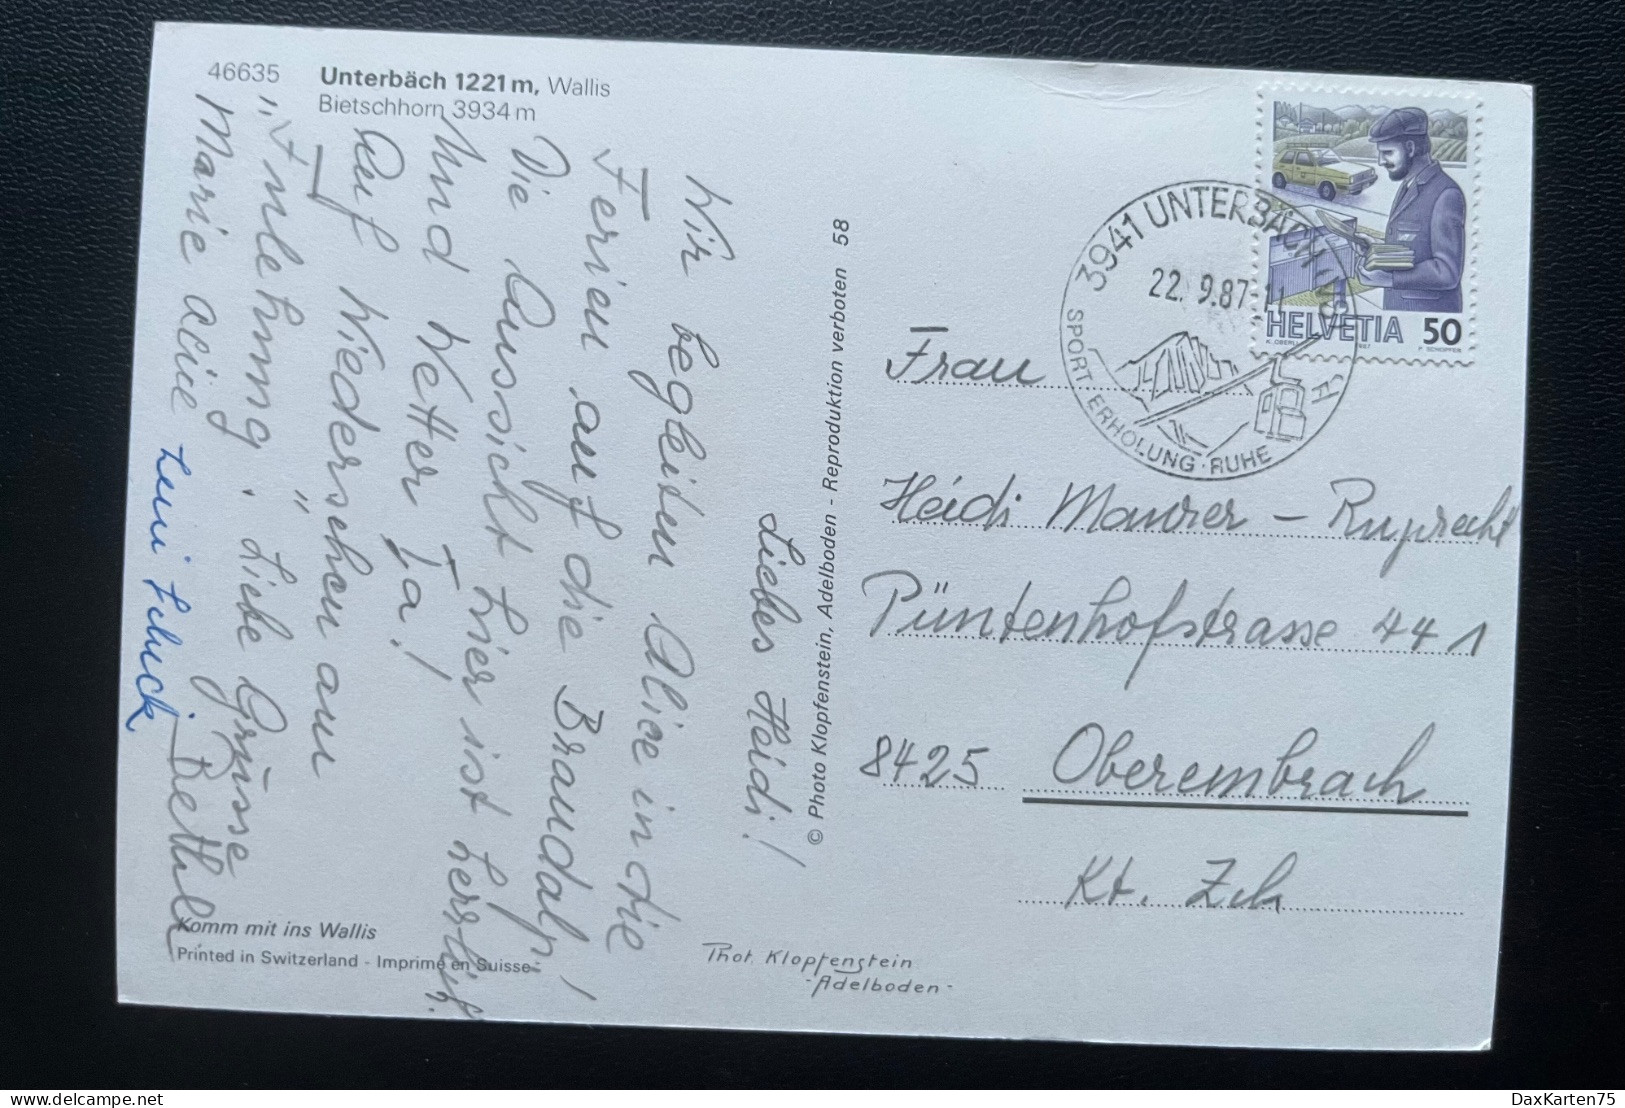 46635
Unterbäch 1221m, Wallis
Bietschhorn 3934m
Liebes Heidi!
Wir begleiten Alice in die
Ferien auf die Brandalp!
Die Aussicht hier ist herrlich.
Und Wetter Ia!
Auf Wiedersehen am
Liebe Grüsse
Marie
Bethli
© Photo Klopfenstein, Adelboden - Reproduktion verboten 58
Komm mit ins Wallis
Printed in Switzerland - Imprimé en Suisse
Phot. Klopfenstein
- Adelboden -
3941 UNTERBÄCH
22. 9.87
SPORT ERHOLUNG · RUHE
HELVETIA 50
Frau
Heidi Maurer - Ruprecht
Püntenhofstrasse 441
8425 Oberembrach
Kt. Zch
DaxKarten75